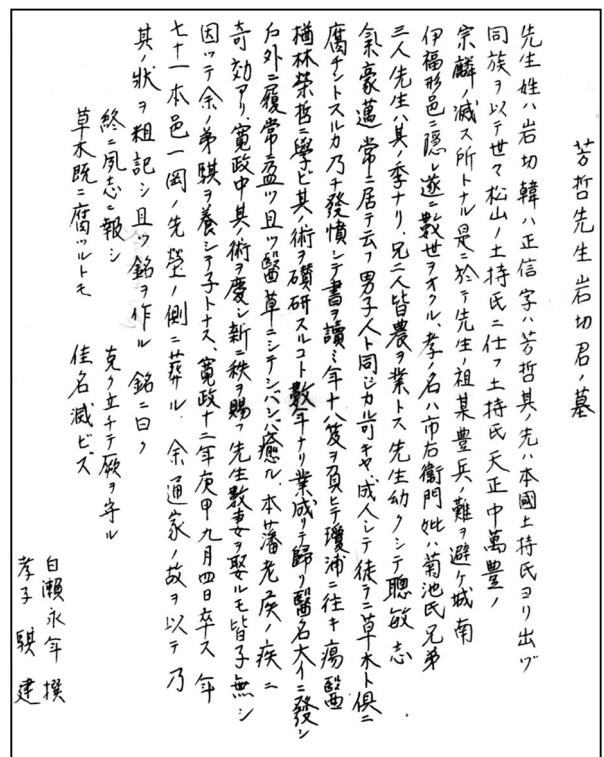 芳哲先生岩切君ノ墓
先生姓ハ岩切韓ハ正信字ハ芳哲其ノ先ハ本國土持氏ヨリ出ヅ
同族ヲ以テ世々松山ノ土持氏ニ仕フ土持氏天正中萬豊ノ
宗麟ノ滅ス所トナル是ニ於テ先生ノ祖某豊兵ノ難ヲ避ケ城南
伊福形邑ニ隠レ遂ニ數世ヲオクル、孝ノ名ハ市右衞門妣ハ菊池氏兄弟
三人先生ハ其ノ季ナリ、兄二人皆農ヲ業トス先生幼クシテ聰敏志
氣豪邁常ニ居テ云フ男子人ト同ジカル可キヤ、成人シテ徒ラニ草木ト俱ニ
腐チントスルカ乃チ發憤シテ書ヲ讀ミ年十八笈ヲ負ヒテ瓊浦ニ往キ瘍醫
楢林榮哲ニ學ビ其ノ術ヲ礸研スルコト數年ナリ業成リテ歸リ醫名大イニ發シ
戸外ニ履常ニ盈ツ且ツ醫草ニシテシバシバ癒ル 本藩老侯ノ疾ニ
奇効アリ、寛政中其ノ術ヲ慶シ新ニ秩ヲ賜フ先生數妻ヲ娶ルモ皆子無シ
因ッテ余ノ弟騏ヲ養シテ子トナス、寛政十二年庚申九月四日卒ス 年
七十一本邑一岡ノ先塋ノ側ニ葬ル 余通家ノ故ヲ以テ乃
其ノ状ヲ粗記シ且ツ銘ヲ作ル 銘ニ曰ク
終ニ夙志ニ報シ 克ク立チテ厥ヲ守ル
草木既ニ腐ツルトモ 佳名滅ビズ
白瀬永年 撰
孝子 騏 建